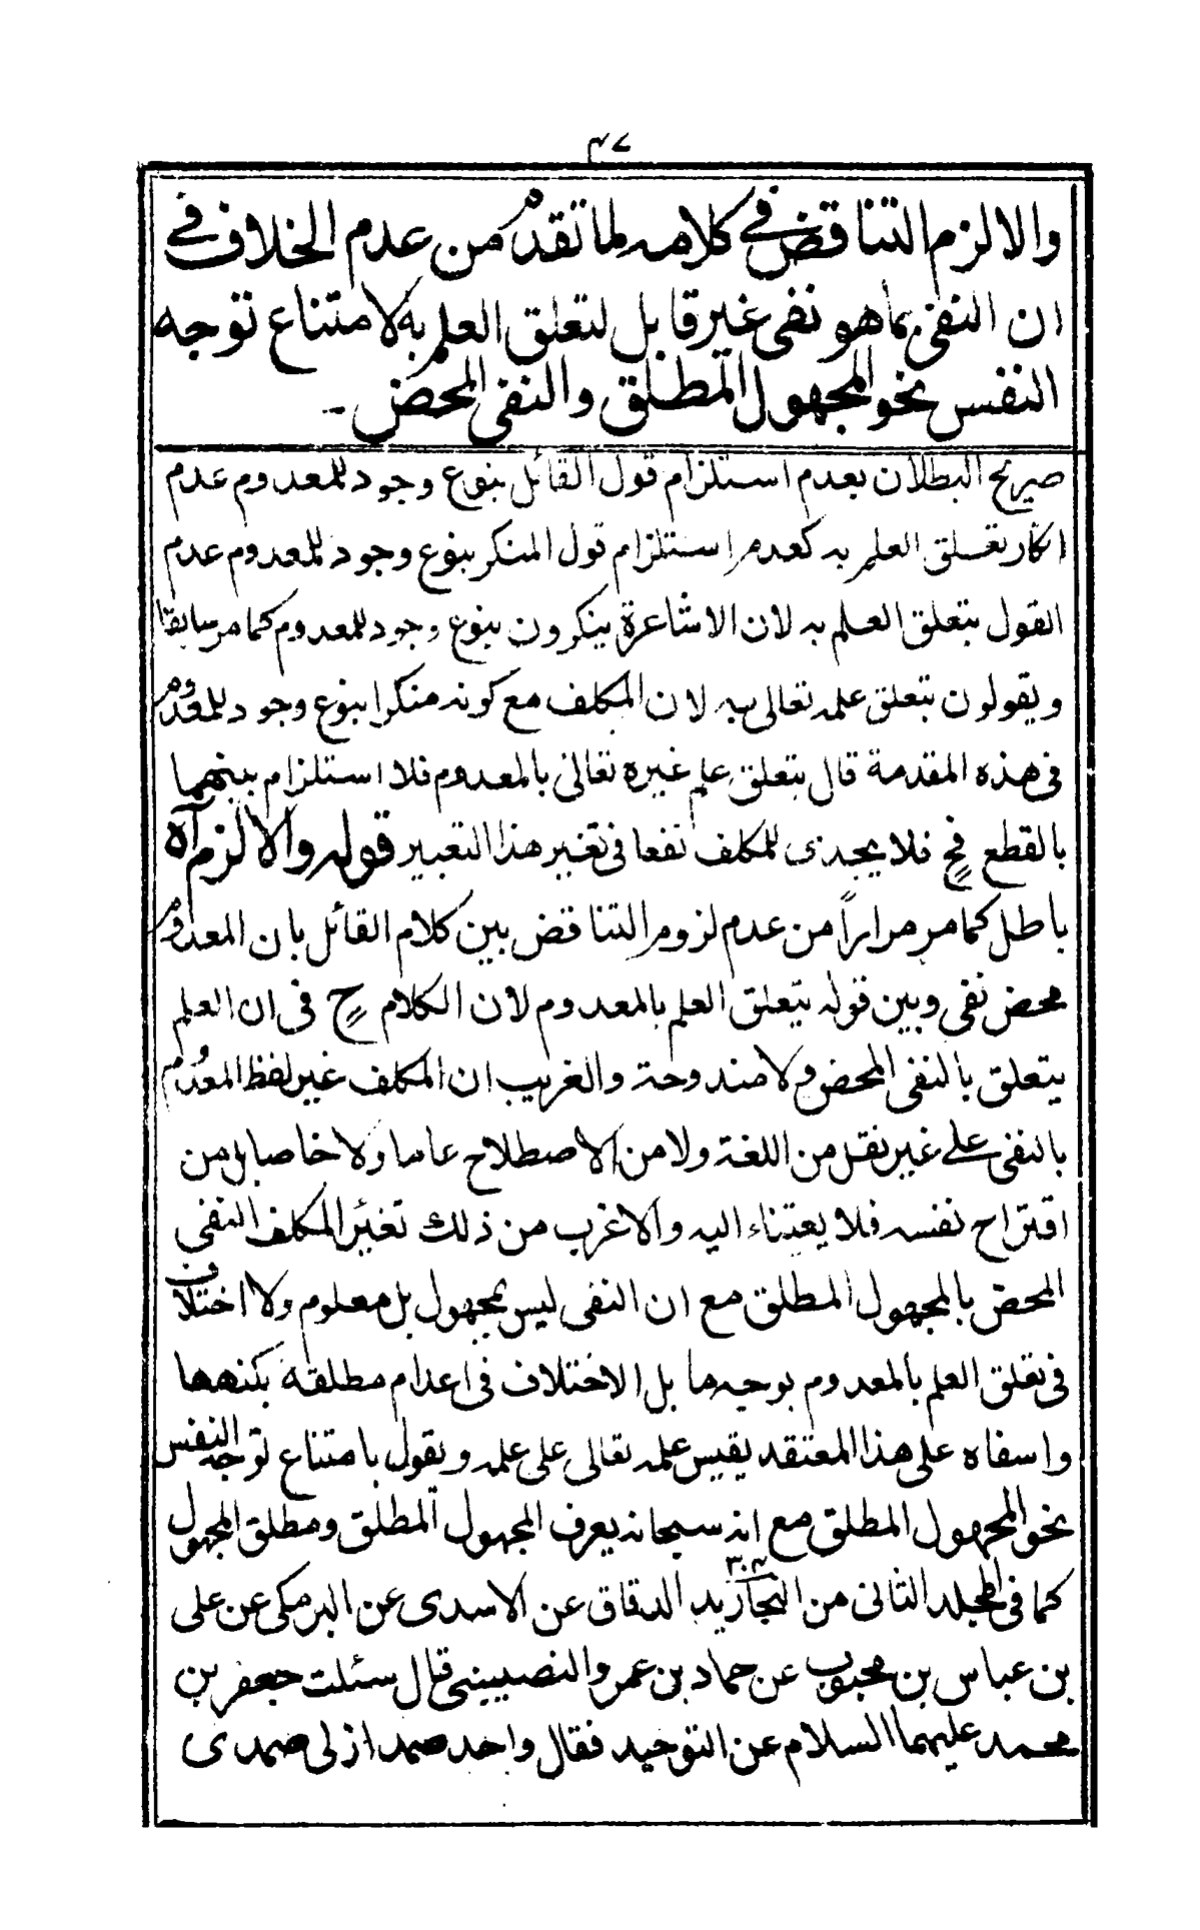 ٤٧
والا لزم التناقض فى كلامه لما تقدم من عدم الخلاف فى
ان النفى بما هو نفى غير قابل لتعلق العلم به لامتناع توجه
النفس نحو المجهول المطلق والنفى المحض ـ
صريح البطلان بعدم استلزام قول القائل بنوع وجود للمعدوم عدم
انكار تعلق العلم به كعدم استلزام قول المنكر بنوع وجود للمعدوم عدم
القول بتعلق العلم به لان الاشاعرة ينكرون بنوع وجود للمعدوم كما مر سابقا
ويقولون بتعلق علمه تعالى به لان المكلف مع كونه منكرا بنوع وجود للمعدوم
فى هذه المقدمة قال بتعلق علم غيره تعالى بالمعدوم فلا استلزام بينهما
بالقطع فح فلا يجدى للمكلف نفعا فى تغير هذا التعبير قوله والا لزم آه
باطل كما مر مراراً من عدم لزوم التناقض بين كلام القائل بان المعدوم
محض نفى وبين قوله بتعلق العلم بالمعدوم لان الكلام ح فى ان العلم
يتعلق بالنفى المحض ولا مندوحة والغريب ان المكلف غير لفظ المعدوم
بالنفى على غير نقل من اللغة ولا من الاصطلاح عاما ولا خاصا بل من
اقتراح نفسه فلا يعتناء اليه والاغرب من ذلك تغير المكلف النفى
المحض بالمجهول المطلق مع ان النفى ليس بمجهول بل معلوم ولا اختلاف
فى تعلق العلم بالمعدوم بوجه ما بل الاختلاف فى اعدام مطلقة بكنهها
وا سفاه على هذا المعتقد يقيس علمه تعالى على علمه ويقول بامتناع توجه النفس
نحو المجهول المطلق مع انه سبحانه يعرف المجهول المطلق ومطلق المجهول
كما فى المجلد الثانى من البحار يد الدقاق عن الاسدى عن البرمكى عن على
بن عباس بن محبوب عن حماد بن عمرو النصيبينى قال سئلت جعفر بن
محمد عليهما السلام عن التوحيد فقال واحد صمد ازلى صمدى